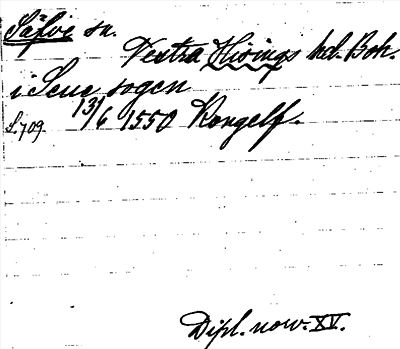 Säfve sn.
Vestra Hisings hd. Boh.
i Seue sogen
S. 709. 13/6 1550 Kongelf.
Dipl. norv. XV.